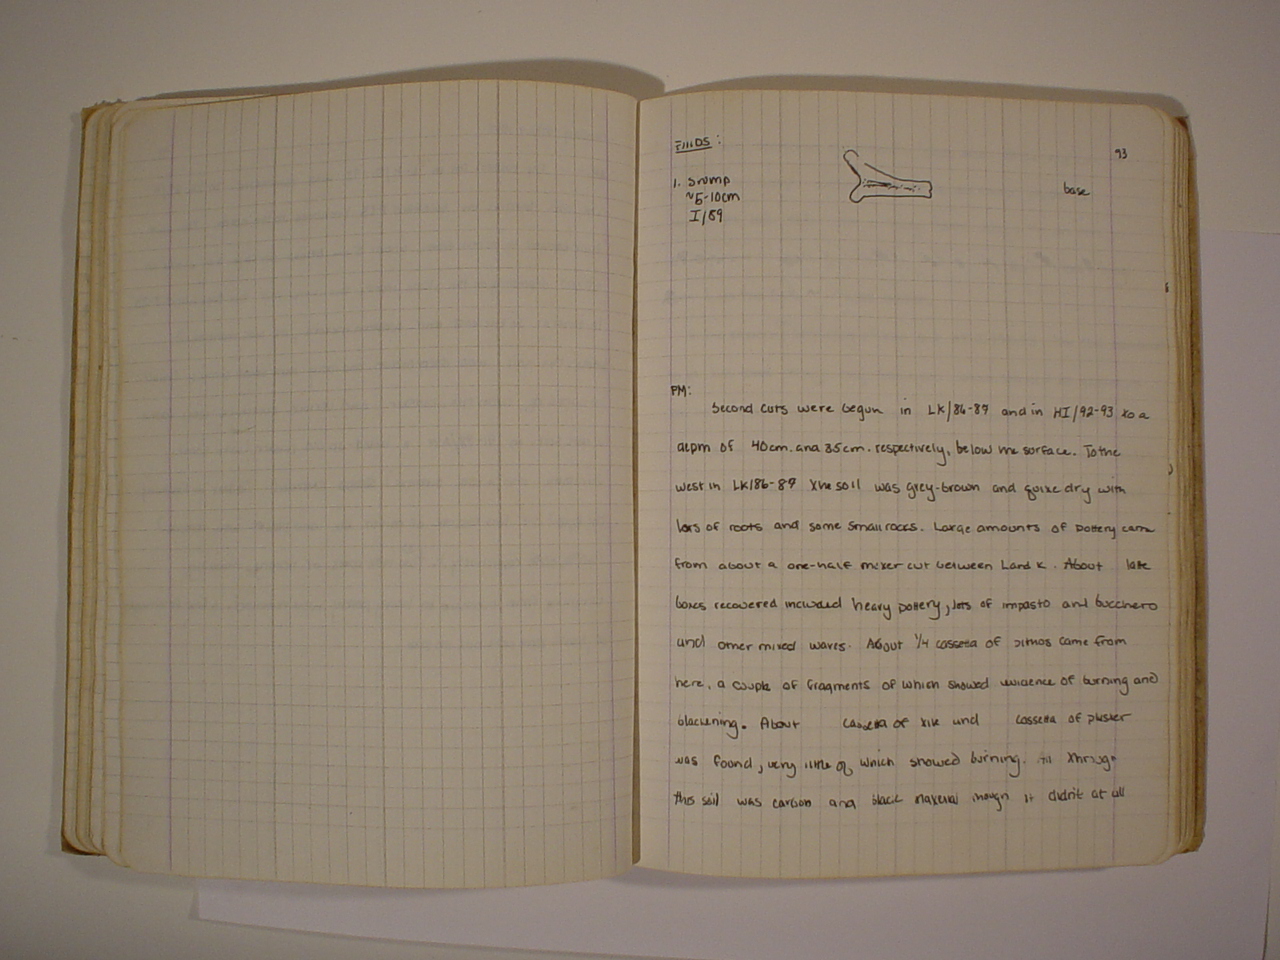 FINDS:
93
1. Dump
~5-10cm
I/89
base
PM:
Second cuts were begun in LK/86-87 and in HI/92-93 to a
depth of 40cm. and 35cm. respectively, below the surface. To the
west in LK/86-87 the soil was grey-brown and quite dry with
lots of roots and some small rocks. Large amounts of pottery came
from about a one-half meter cut between L and K. About late
boxes recovered included heavy pottery, lots of impasto and bucchero
and other mixed wares. About 1/4 cassetta of pithos came from
here, a couple of fragments of which showed evidence of burning and
blackening. About cassetta of tile and cassetta of plaster
was found, very little of which showed burning. All through
this soil was carbon and black material though it didn't at all